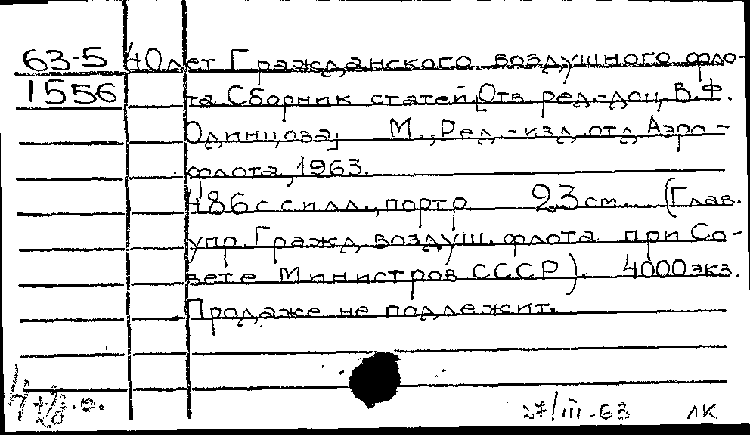 63-5 40 лет Гражданского воздушного фло-
1556 та Сборник статей [Отв ред.-доц В.Ф.
Одинцова] М., Ред.-изд. отд Аэро-
флота, 1963.
486 с с илл., портр 23 см. (Глав.
упр. Гражд воздуш. флота при Со-
вете Министров СССР). 4000 экз.
Продаже не подлежит.
27/III-63 ЛК